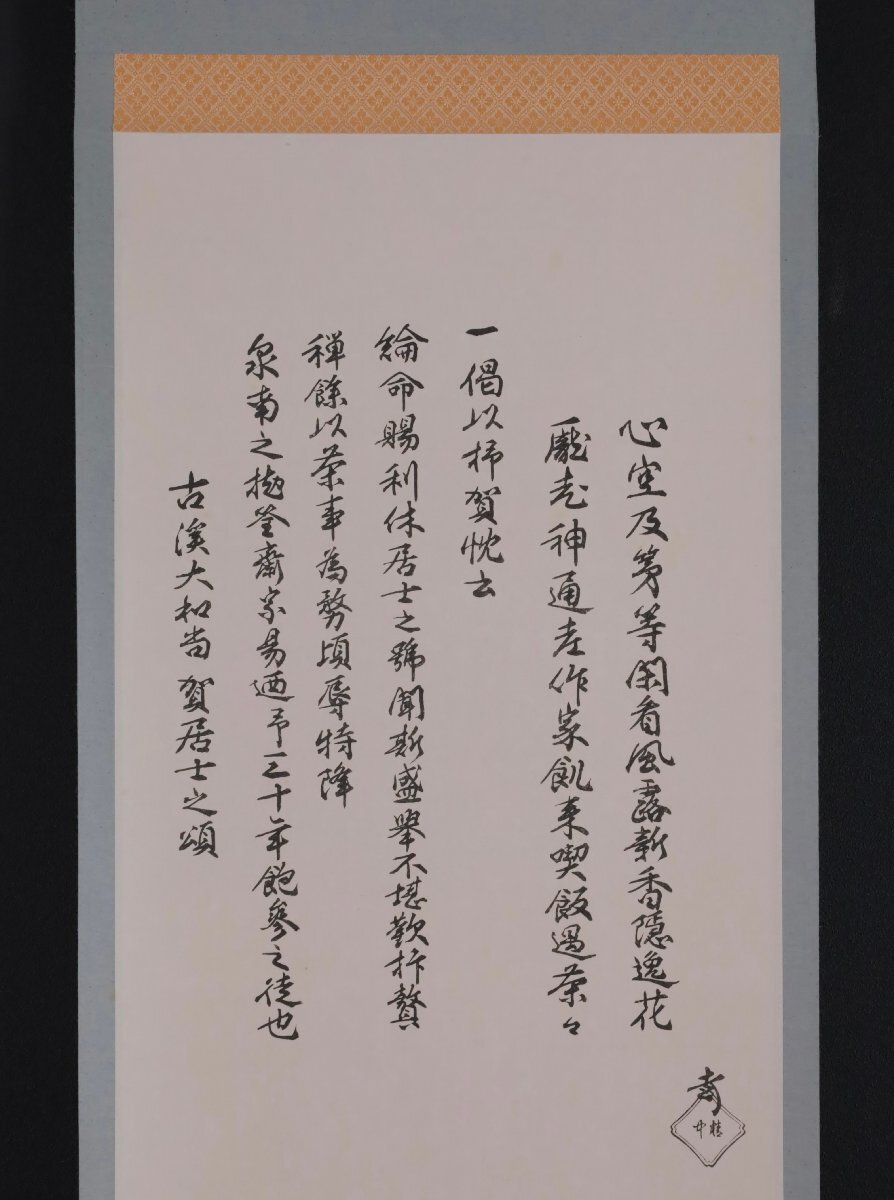 古溪大和尚賀居士之頌
泉南之抛筌齋宗易廼予三十年飽參之徒也
禅餘以茶事為務頃辱特降
綸命賜利休居士之號聞斯盛舉不堪歡抃贅
一偈以抒賀忱云
龐老神通老作家飢来喫飯遇茶々
心空及第等閑看風露新香隠逸花